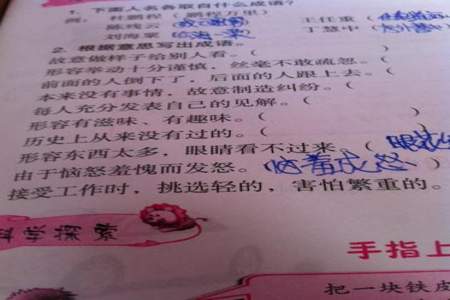 1. 下面人名各取自什么成语?
例:杜鹏程(鹏程万里) 王任重(
陈残云( 丁慧中(
刘海粟(沧海一粟)
2. 根据意思写出成语。
故意做样子给别人看。(
形容举动十分谨慎,丝毫不敢疏忽。(
前面的人倒下了,后面的人跟上去。(
本来没有事情,故意制造纠纷。(
每人充分发表自己的见解。(
形容有滋味、有趣味。(
历史上从来没有过的。(
形容东西太多,眼睛看不过来。(眼花
由于恼怒羞愧而发怒。(恼羞成怒)
接受工作时,挑选轻的,害怕繁重的。
手指上
把一块铁皮